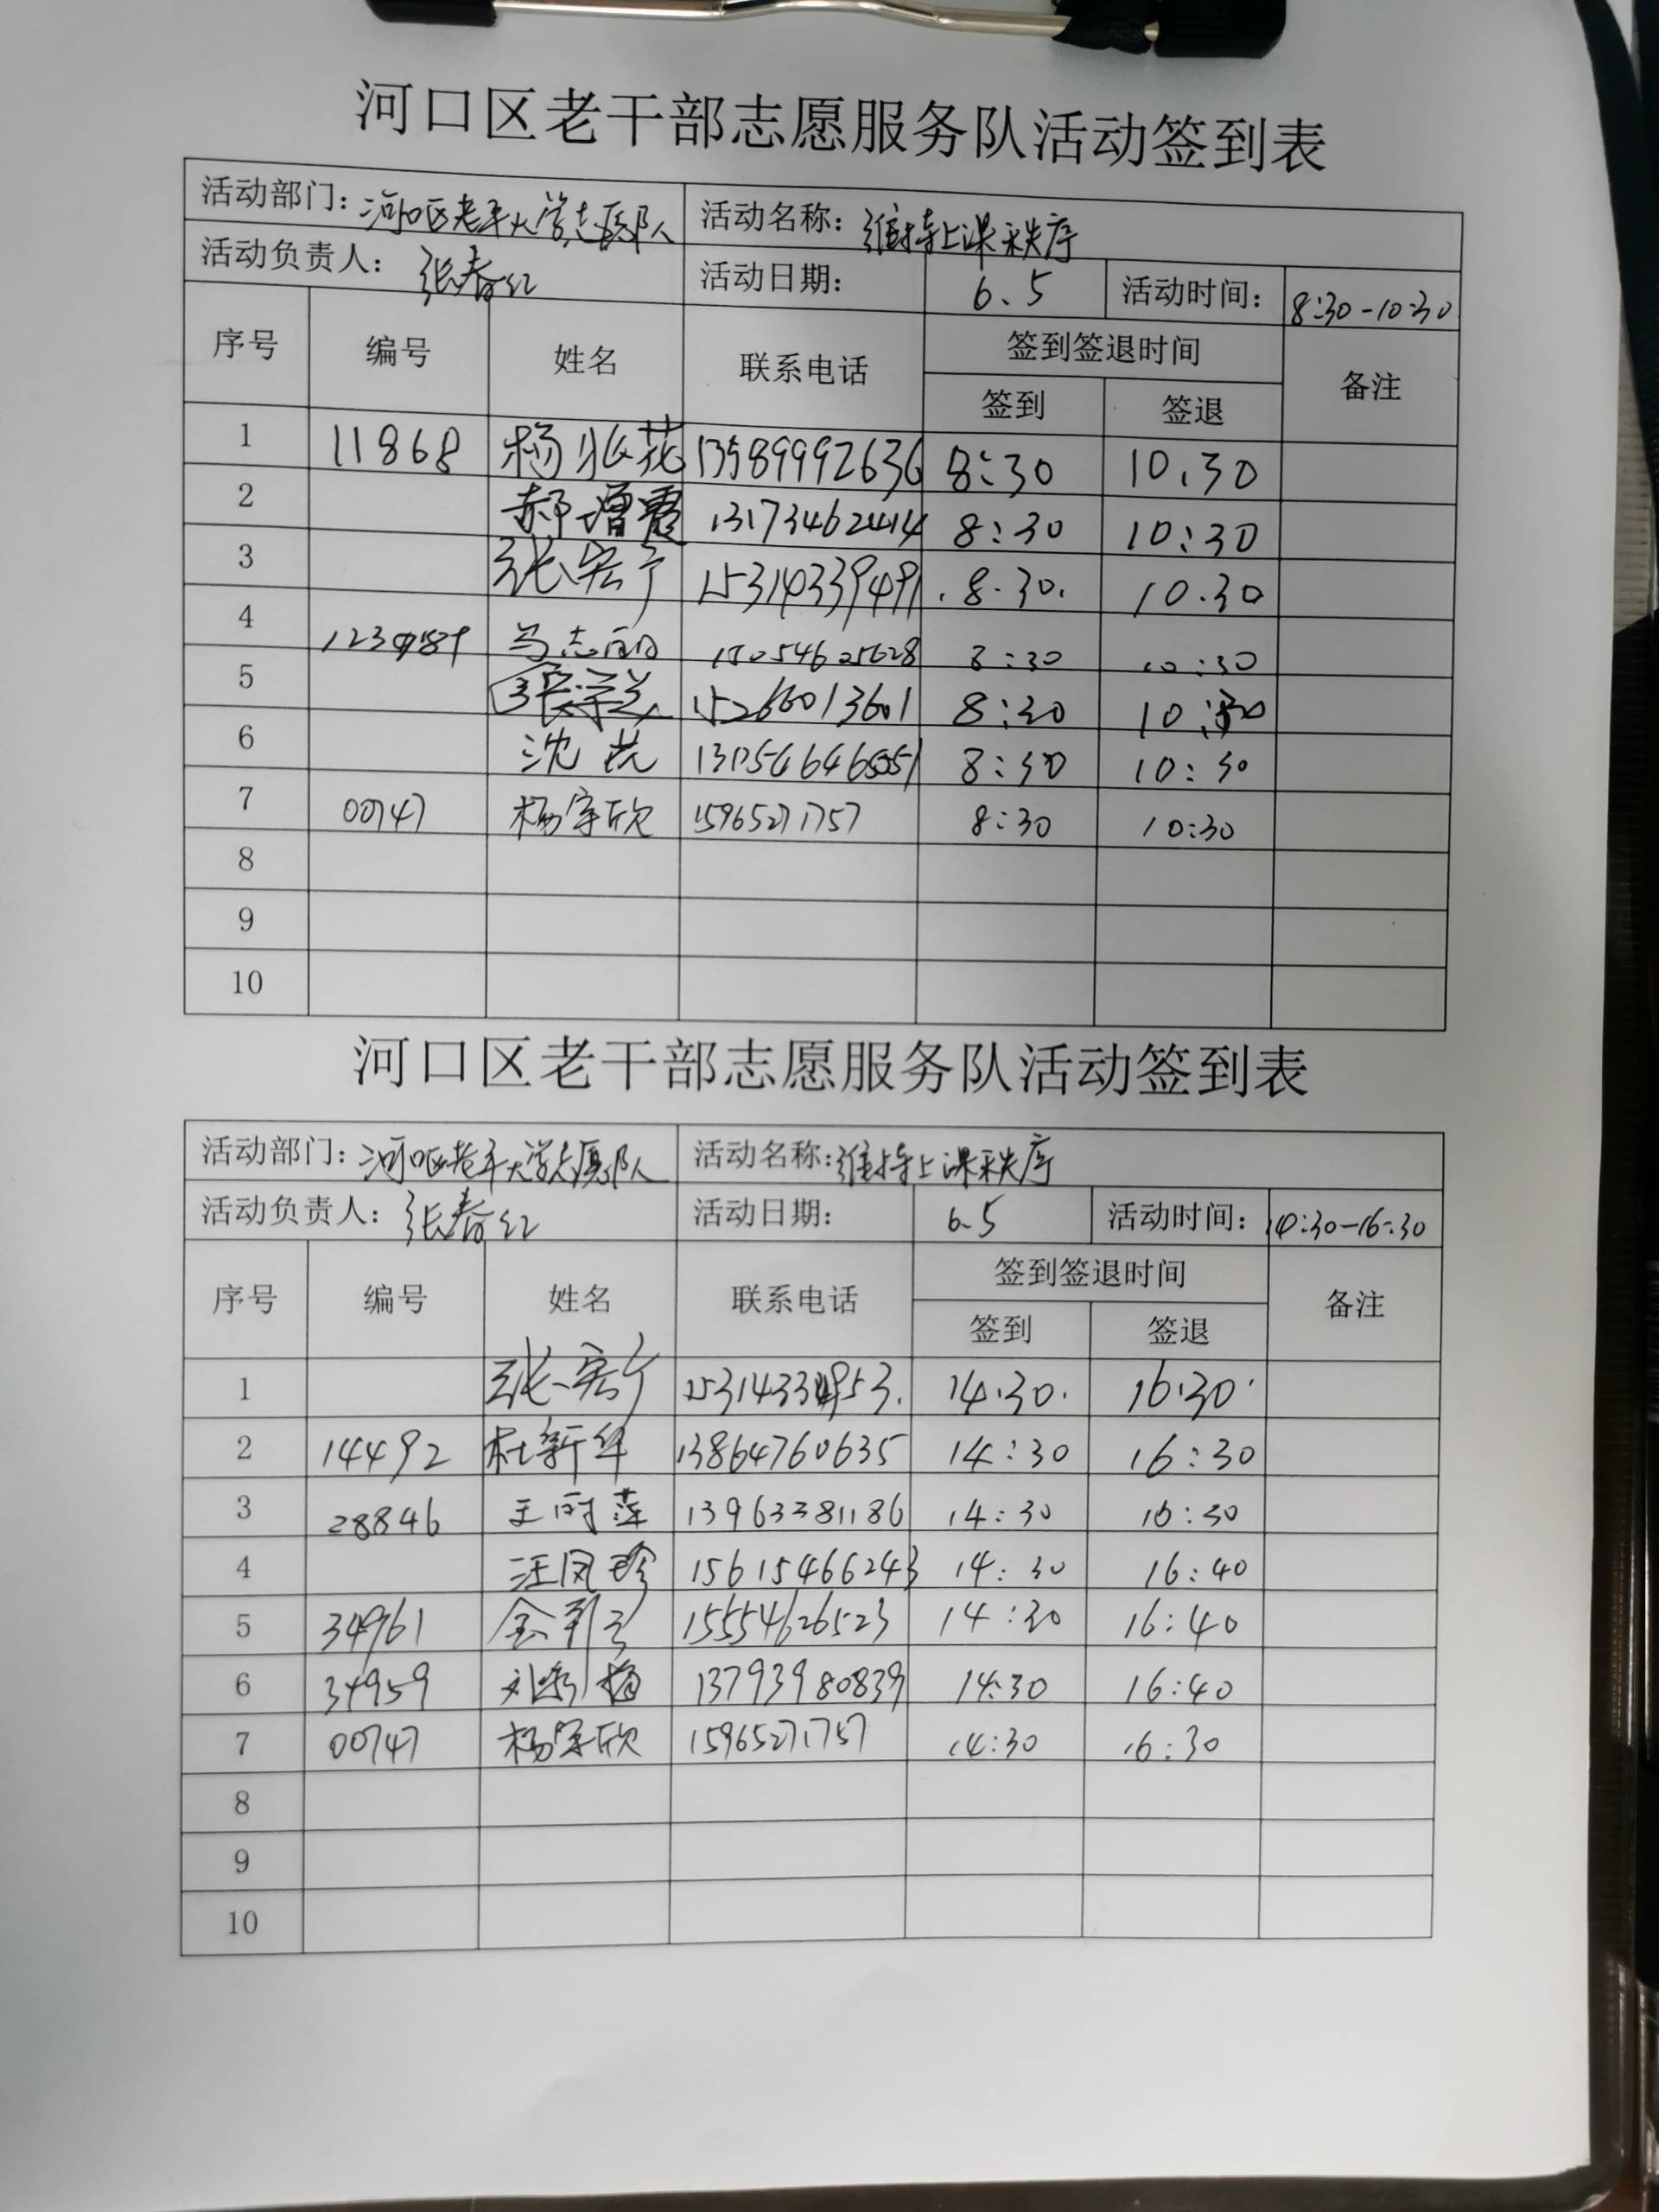 河口区老干部志愿服务队活动签到表
活动部门：河口区老年大学志愿队 活动名称：维持上课秩序
活动负责人：张春红 活动日期：6.5 活动时间：8:30-10:30
序号 编号 姓名 联系电话 签到签退时间 备注
签到 签退
1 11868 杨花 13589992636 8:30 10.30
2 郝增霞 13173462414 8:30 10:30
3 张宏 15314339491 8.30. 10.30
4 马志 8:30 10:30
5 15266013601 8:30 10:30
6 沈 8:30 10:30
7 00747 杨宇欣 15965271757 8:30 10:30
8
9
10
河口区老干部志愿服务队活动签到表
活动部门：河口区老年大学志愿队 活动名称：维持上课秩序
活动负责人：张春红 活动日期：6.5 活动时间：14:30-16:30
序号 编号 姓名 联系电话 签到签退时间 备注
签到 签退
1 张宏 14.30. 16.30.
2 14492 杜新华 13864760635 14:30 16:30
3 28846 王萍 13963381186 14:30 16:30
4 汪凤珍 15615466243 14:30 16:40
5 34961 金 15554626523 14:30 16:40
6 34959 刘梅 13793980839 14:30 16:40
7 00747 杨宇欣 15965271757 14:30 16:30
8
9
10